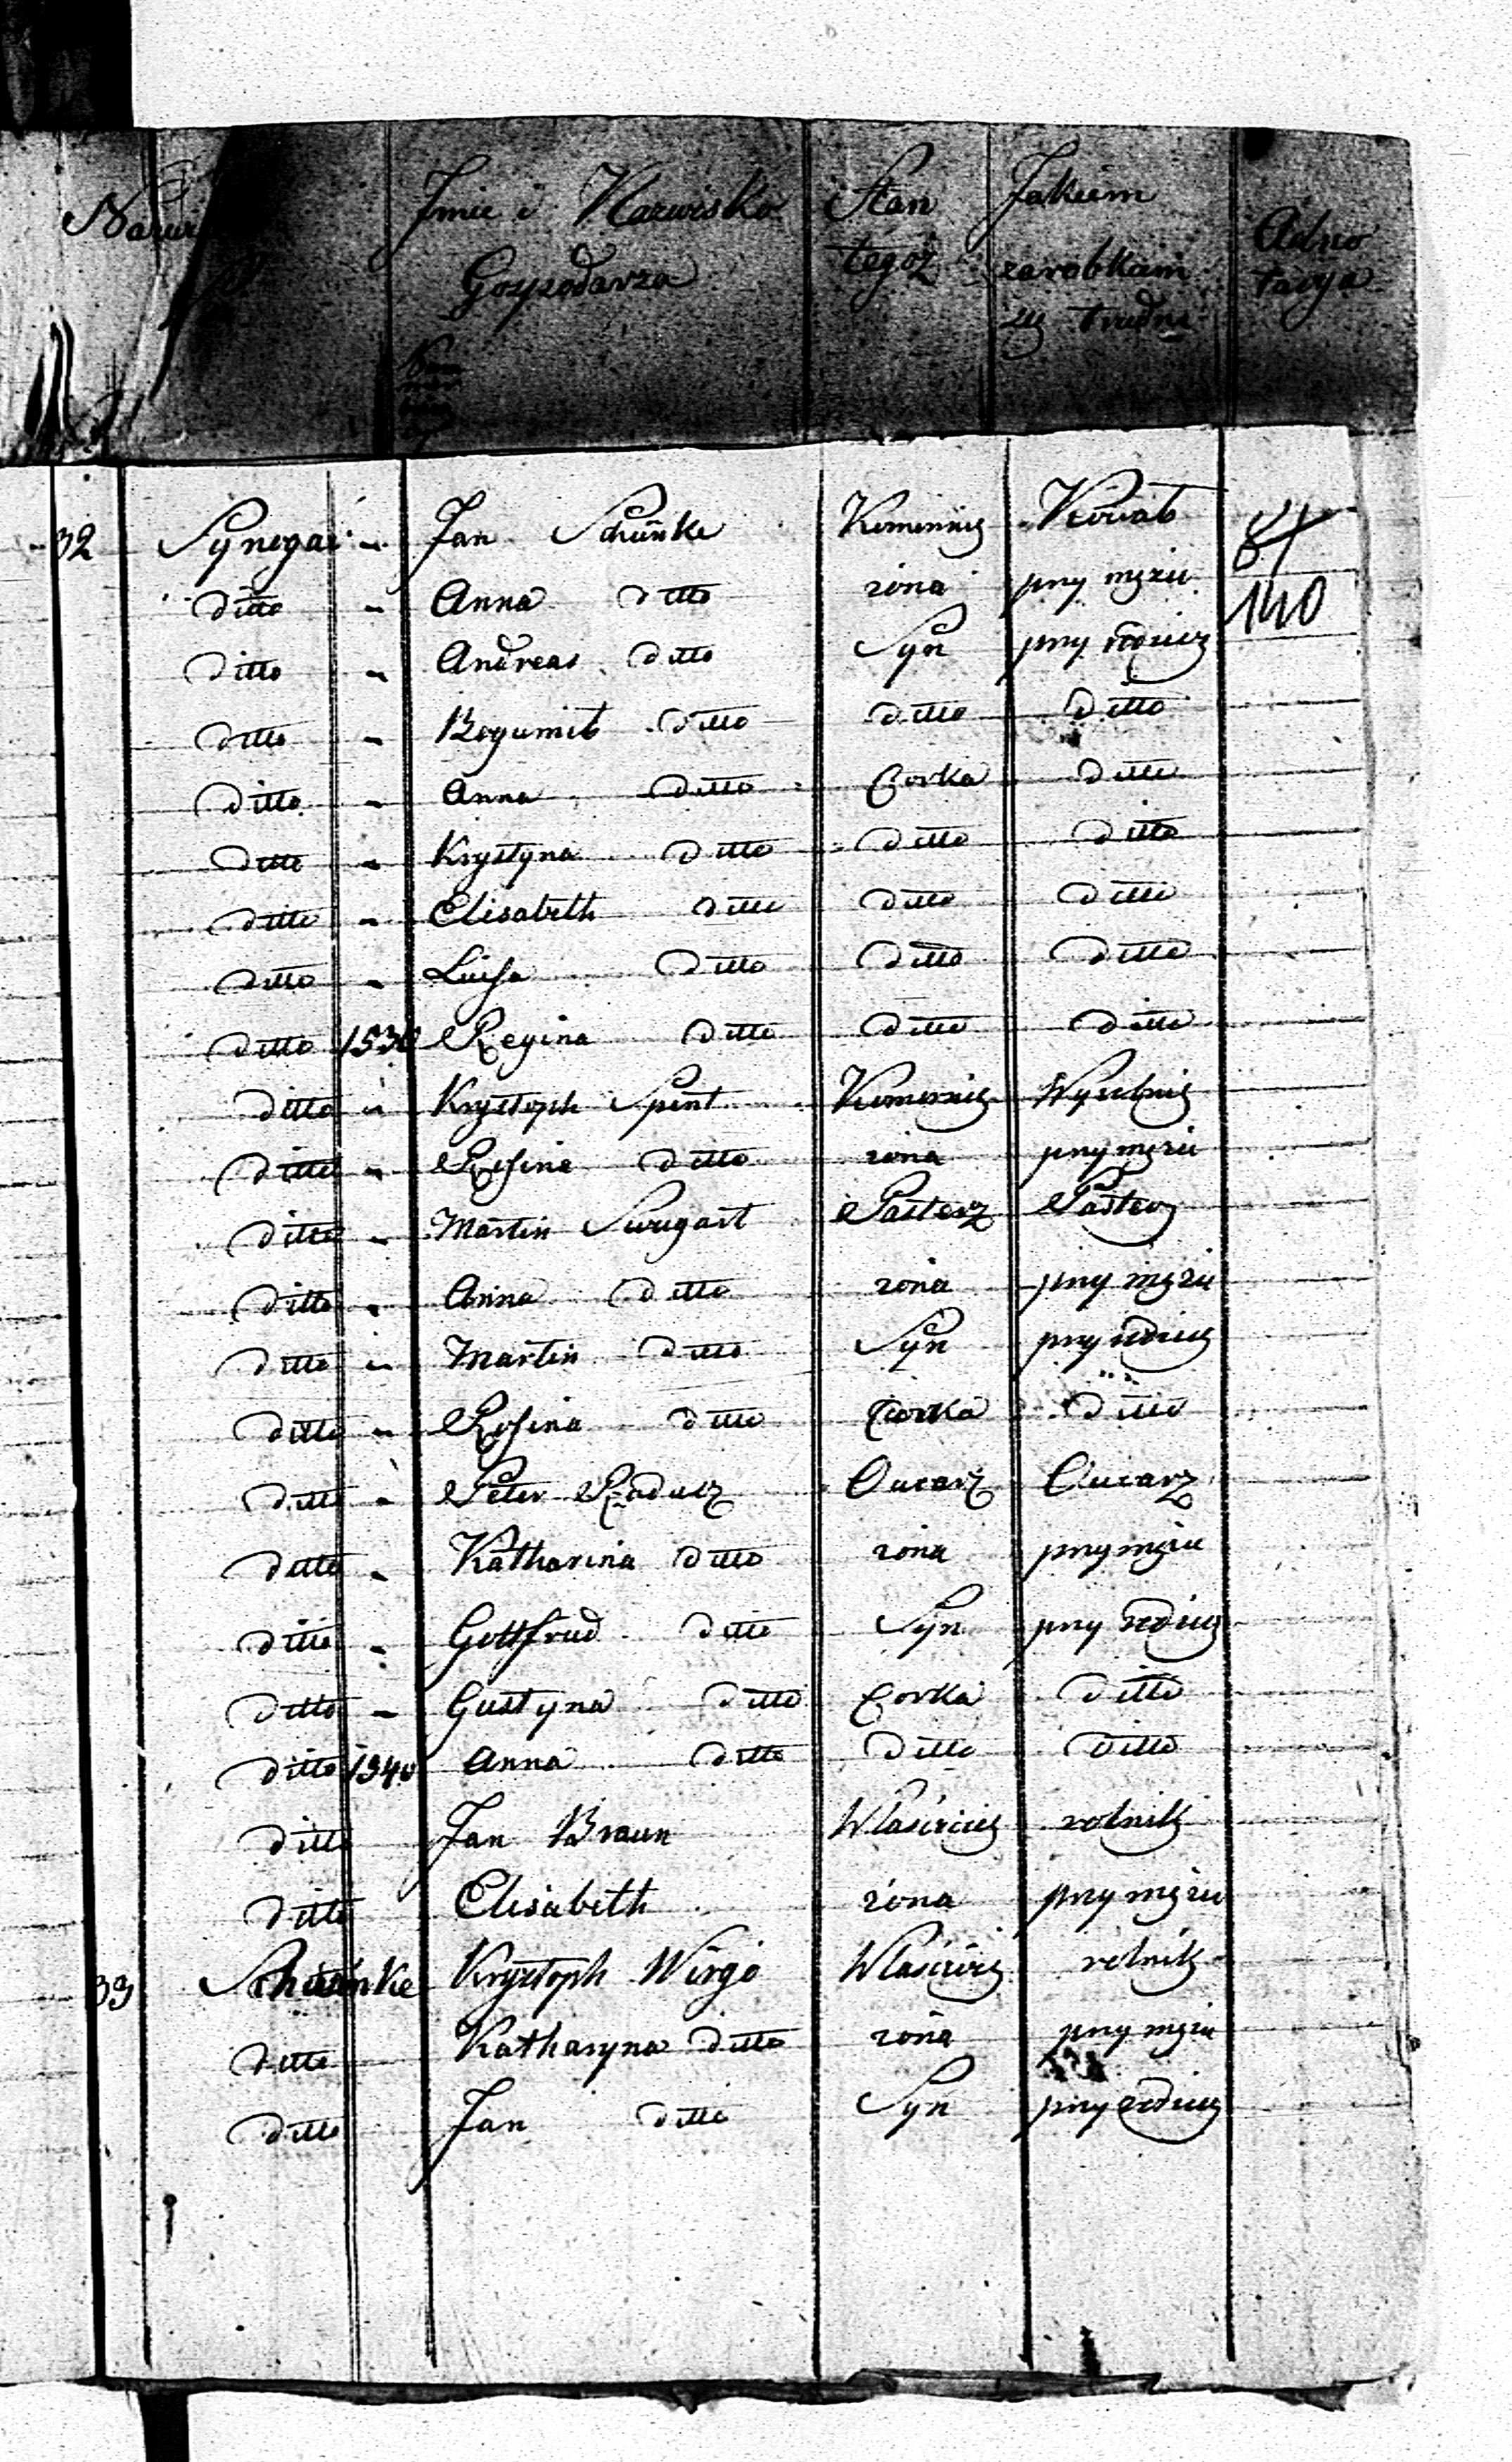 Imie i Nazwisko Gospodarza Stan tegoż Jakiem zarobkiem się trudni Adnotacya
32 Synogać - Jan Schünke Komornig 84
ditto - Anna ditto żona przy mężu 140
ditto - Andreas ditto Syn przy rodzicz
ditto - Bogumił ditto ditto ditto
ditto - Anna ditto Corka ditto
ditto - Krystyna ditto ditto ditto
ditto - Elisabeth ditto ditto ditto
ditto - Luisa ditto ditto ditto
ditto 1530 Regina ditto ditto ditto
ditto - Krysztoph Spint Komornig Wyrobnig
ditto - Rosina ditto żona przy mężu
ditto - Martin Swugart Pasterz Pasterz
ditto - Anna ditto żona przy mężu
ditto - Martin ditto Syn przy rodzicz
ditto - Rosina ditto Corka ditto
ditto - Peter Raducz Owcarz Owcarz
ditto - Katharina ditto żona przy mężu
ditto - Gottfried ditto Syn przy rodzicz
ditto - Gustyna ditto Corka ditto
ditto 1540 Anna ditto ditto ditto
ditto Jan Braun Właściciel rolnik
ditto Elisabeth żona przy mężu
33 Krysztoph Wirgo Właściciel rolnik
ditto Katharyna ditto żona przy mężu
ditto Jan ditto Syn przy rodzicz